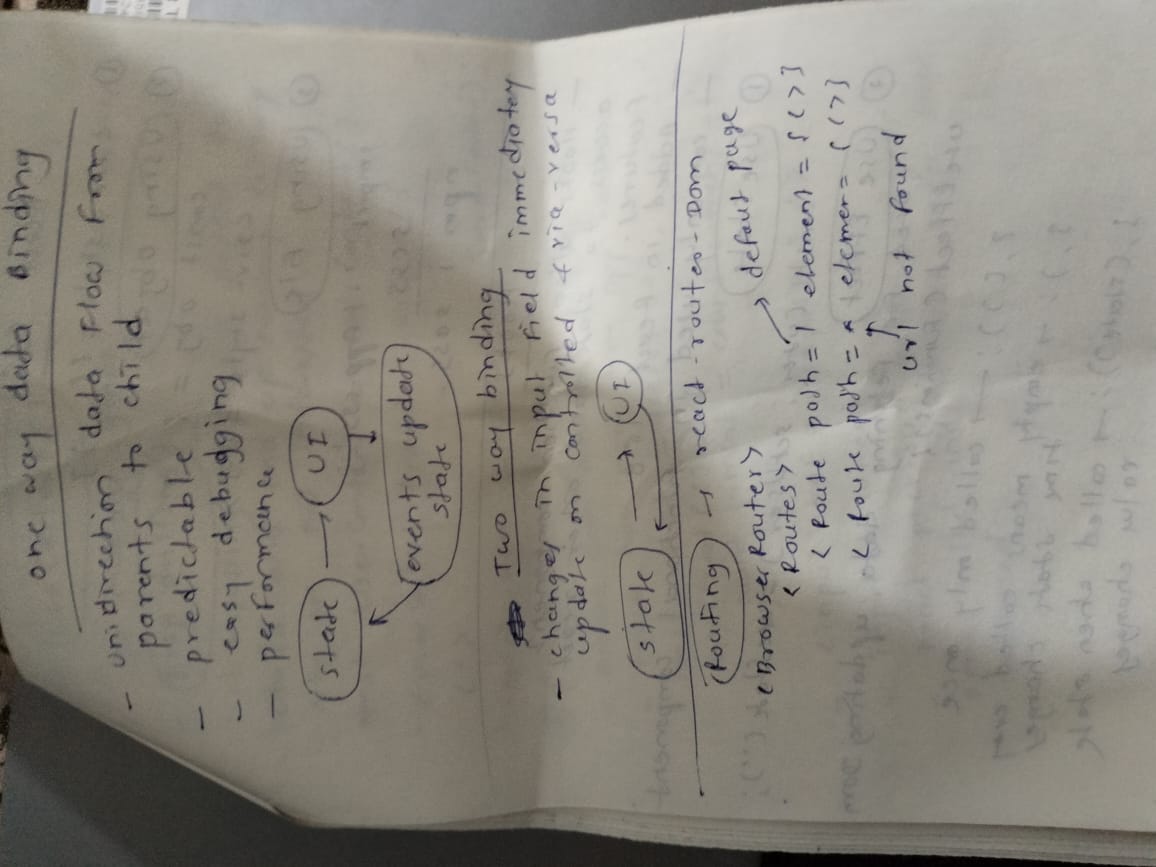 one way data Binding
- unidirection data flow from
parents to child
- predictable
- easy debugging
- performance
state → UI
events update
state
Two way binding
- changes in input field immediatey
update on controlled & via-versa
state → UI
Routing → react-router-Dom
<BrowserRouter>
<Routes> → defaut page
< Route path = / element = {< >}
< Route path = * elemen = { < >}
url not found